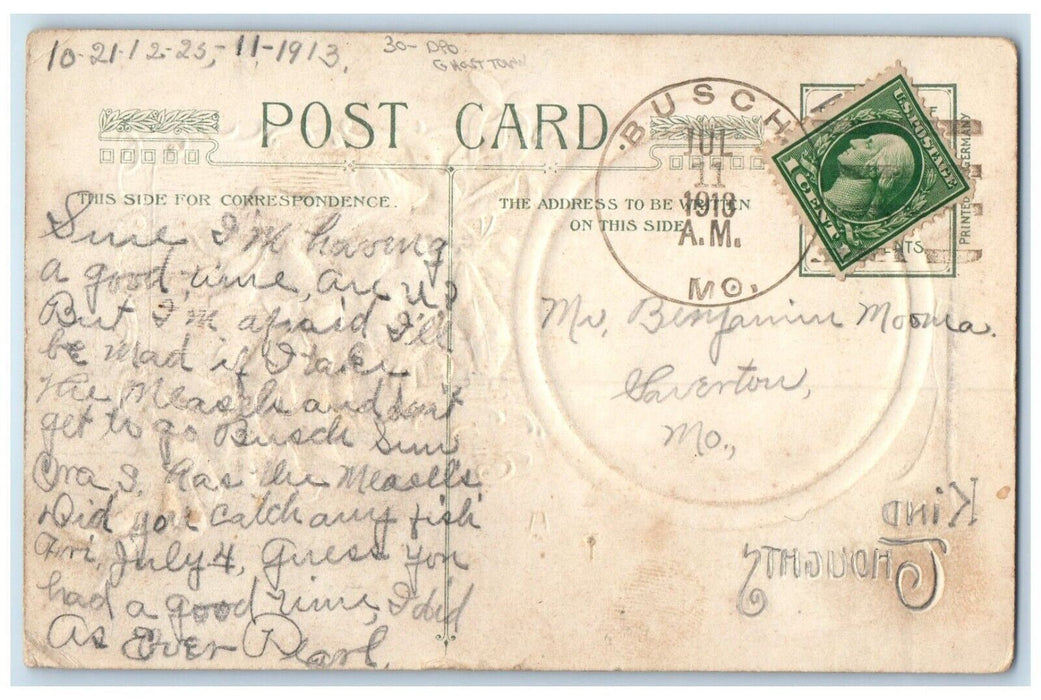 10-21-12-25-11-1913.
30- DPO
Ghost Town
POST CARD
BUSCH
JUL
11
1913
A.M.
MO.
U.S. POSTAGE
1 CENT 1
NTS.
PRINTED GERMANY
THIS SIDE FOR CORRESPONDENCE.
THE ADDRESS TO BE WRITTEN
ON THIS SIDE
Sure I'm having
a good time, are u?
But I'm afraid I'll
be mad if I take
the Measels and don't
get to go Busch Sun
Ora S. has the Measels
Did you catch any fish
Fri, July 4, Guess you
had a good time, I did
As Ever Pearl.
Mr. Benjamin
Saverton,
Mo.,
KIND
THOUGHTS